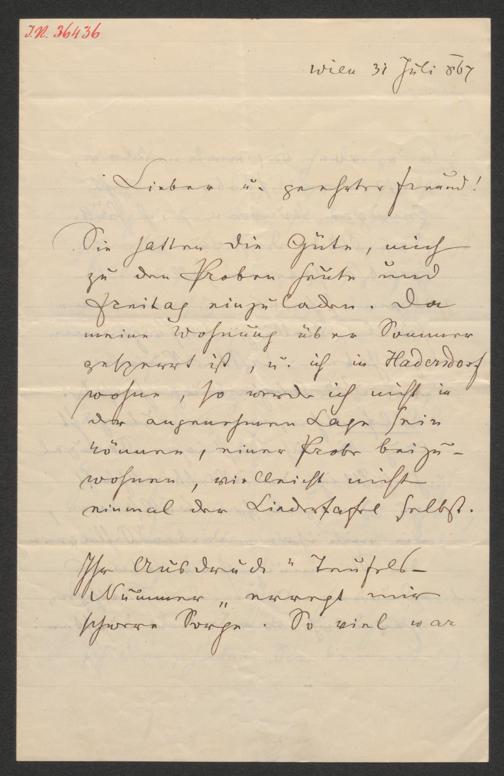 J.N. 36436
Wien 31 Juli 867
Lieber u. geehrter Freund!
Sie hatten die Güte, mich
zu den Proben heute und
Freitag einzuladen. Da
meine Wohnung über Sommer
gesperrt ist, u. ich in Hadersdorf
wohne, so werde ich nicht in
der angenehmen Lage sein
können, einer Probe beizu-
wohnen, vielleicht nicht
einmal der Liedertafel selbst.
Ihr Ausdruck "Teufels-
Nummer" erregt mir
schwere Sorge. So viel war